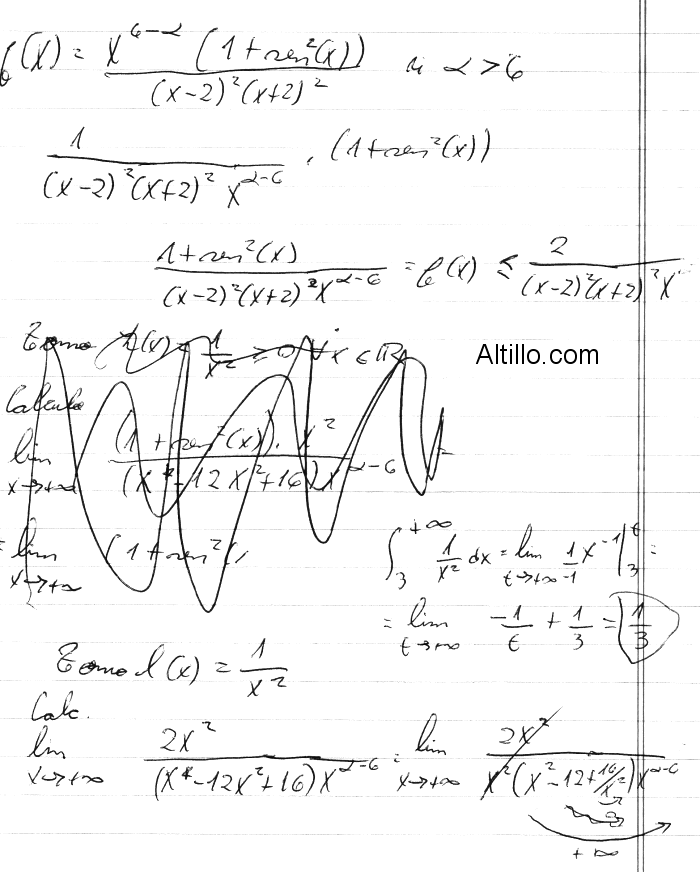 f(x) = x^{6-α} (1+sen²(x)) / (x-2)²(x+2)² si α > 6
1 / (x-2)²(x+2)² x^{α-6} · (1+sen²(x))
1+sen²(x) / (x-2)²(x+2)² x^{α-6} = f(x) ≤ 2 / (x-2)²(x+2)² x
Tomo h(x) = 1/x² ≥ 0 ∀ x ∈ R
Altillo.com
Calculo
lim x→+∞ (1+sen²(x)) · x² / (x⁴-12x²+16) x^{α-6}
= lim x→+∞ (1+sen²(
∫₃^{+∞} 1/x² dx = lim t→+∞ 1/-1 x^{-1} |₃^t =
= lim t→+∞ -1/t + 1/3 = 1/3
Tomo l(x) = 1/x²
Calc.
lim x→+∞ 2x² / (x⁴-12x²+16) x^{α-6} = lim x→+∞ 2x² / x²(x²-12+16/x²) x^{α-6}
+∞